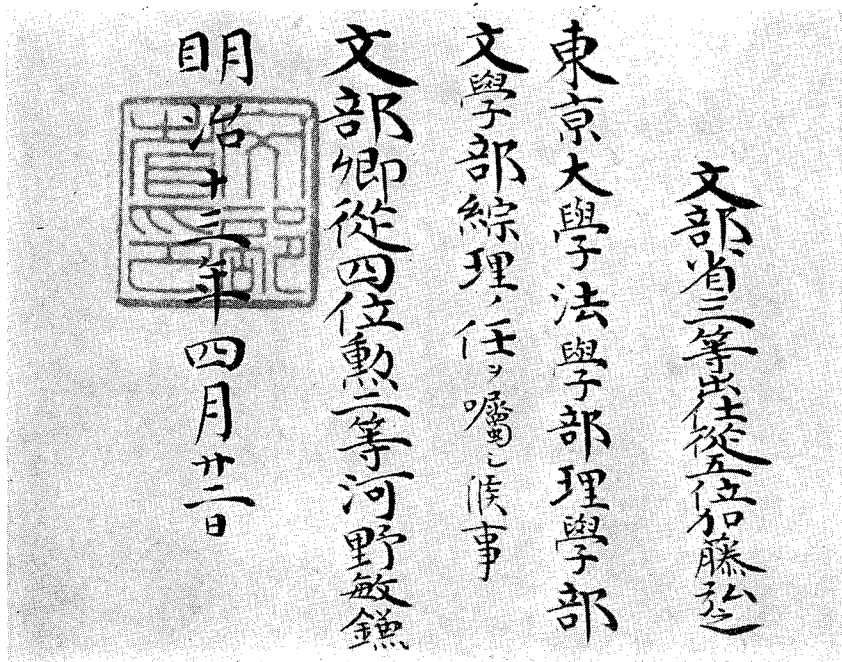 文部省三等出仕從五位加藤弘之
東京大學法學部理學部
文學部綜理ノ任ヲ囑シ候事
文部卿從四位勲二等河野敏鎌
明治十三年四月廿二日
文部省之印